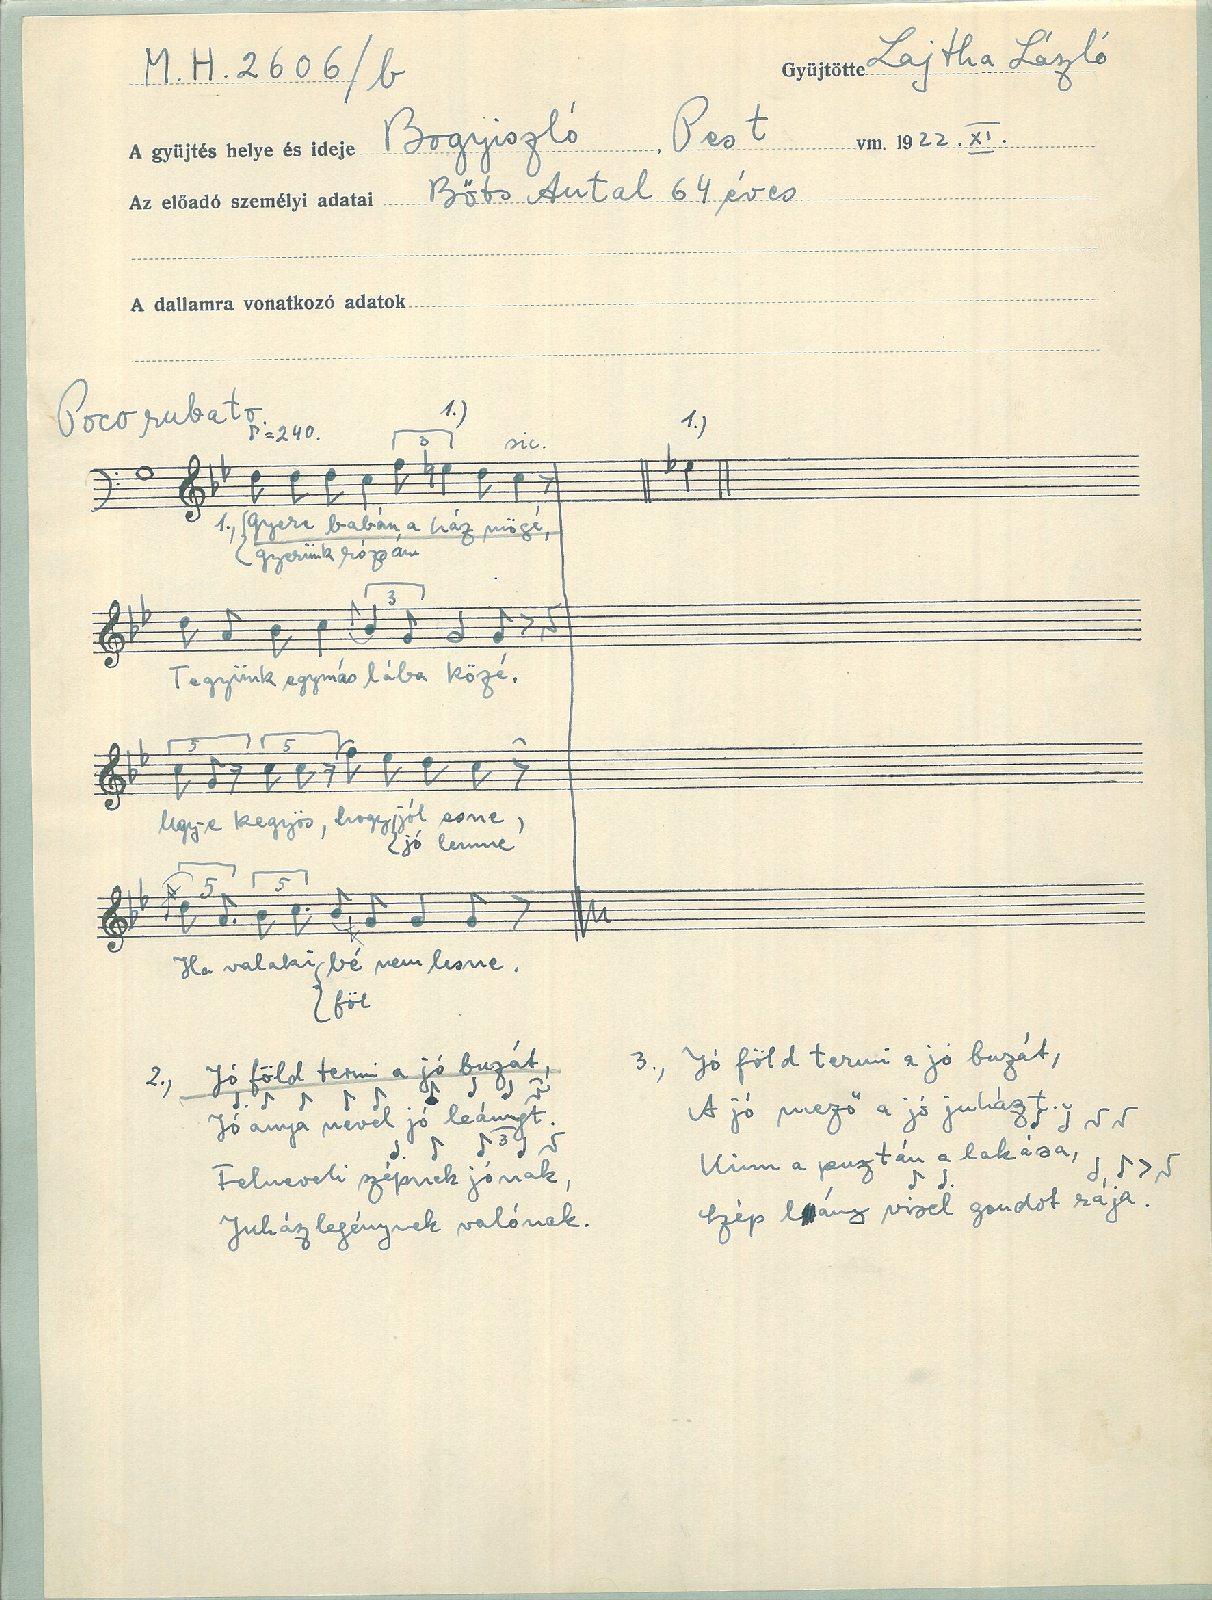 M.H. 2606/b
Gyüjtötte Lajtha László
A gyüjtés helye és ideje Bogyiszló, Pest vm. 1922.XI.
Az előadó személyi adatai Bőts Antal 64 éves
A dallamra vonatkozó adatok
Poco rubato
=240.
1.)
1.)
3
sic.
1., Gyere babám a ház mögé,
gyerünk rózsám
3
Tegyünk egymás lába közé.
5 5
Ugy-e kegyös, hogy jól esne,
jó lenne
5 5
Ha valaki bé nem lesne.
föl
2., Jó föld termi a jó buzát,
Jó anya nevel jó leányt.
3
Felneveli szépnek jónak,
Juhászlegénynek valónak.
3., Jó föld termi a jó buzát,
A jó mező a jó juházt.
Kinn a pusztán a lakása,
Szép lány visel gondot rája.